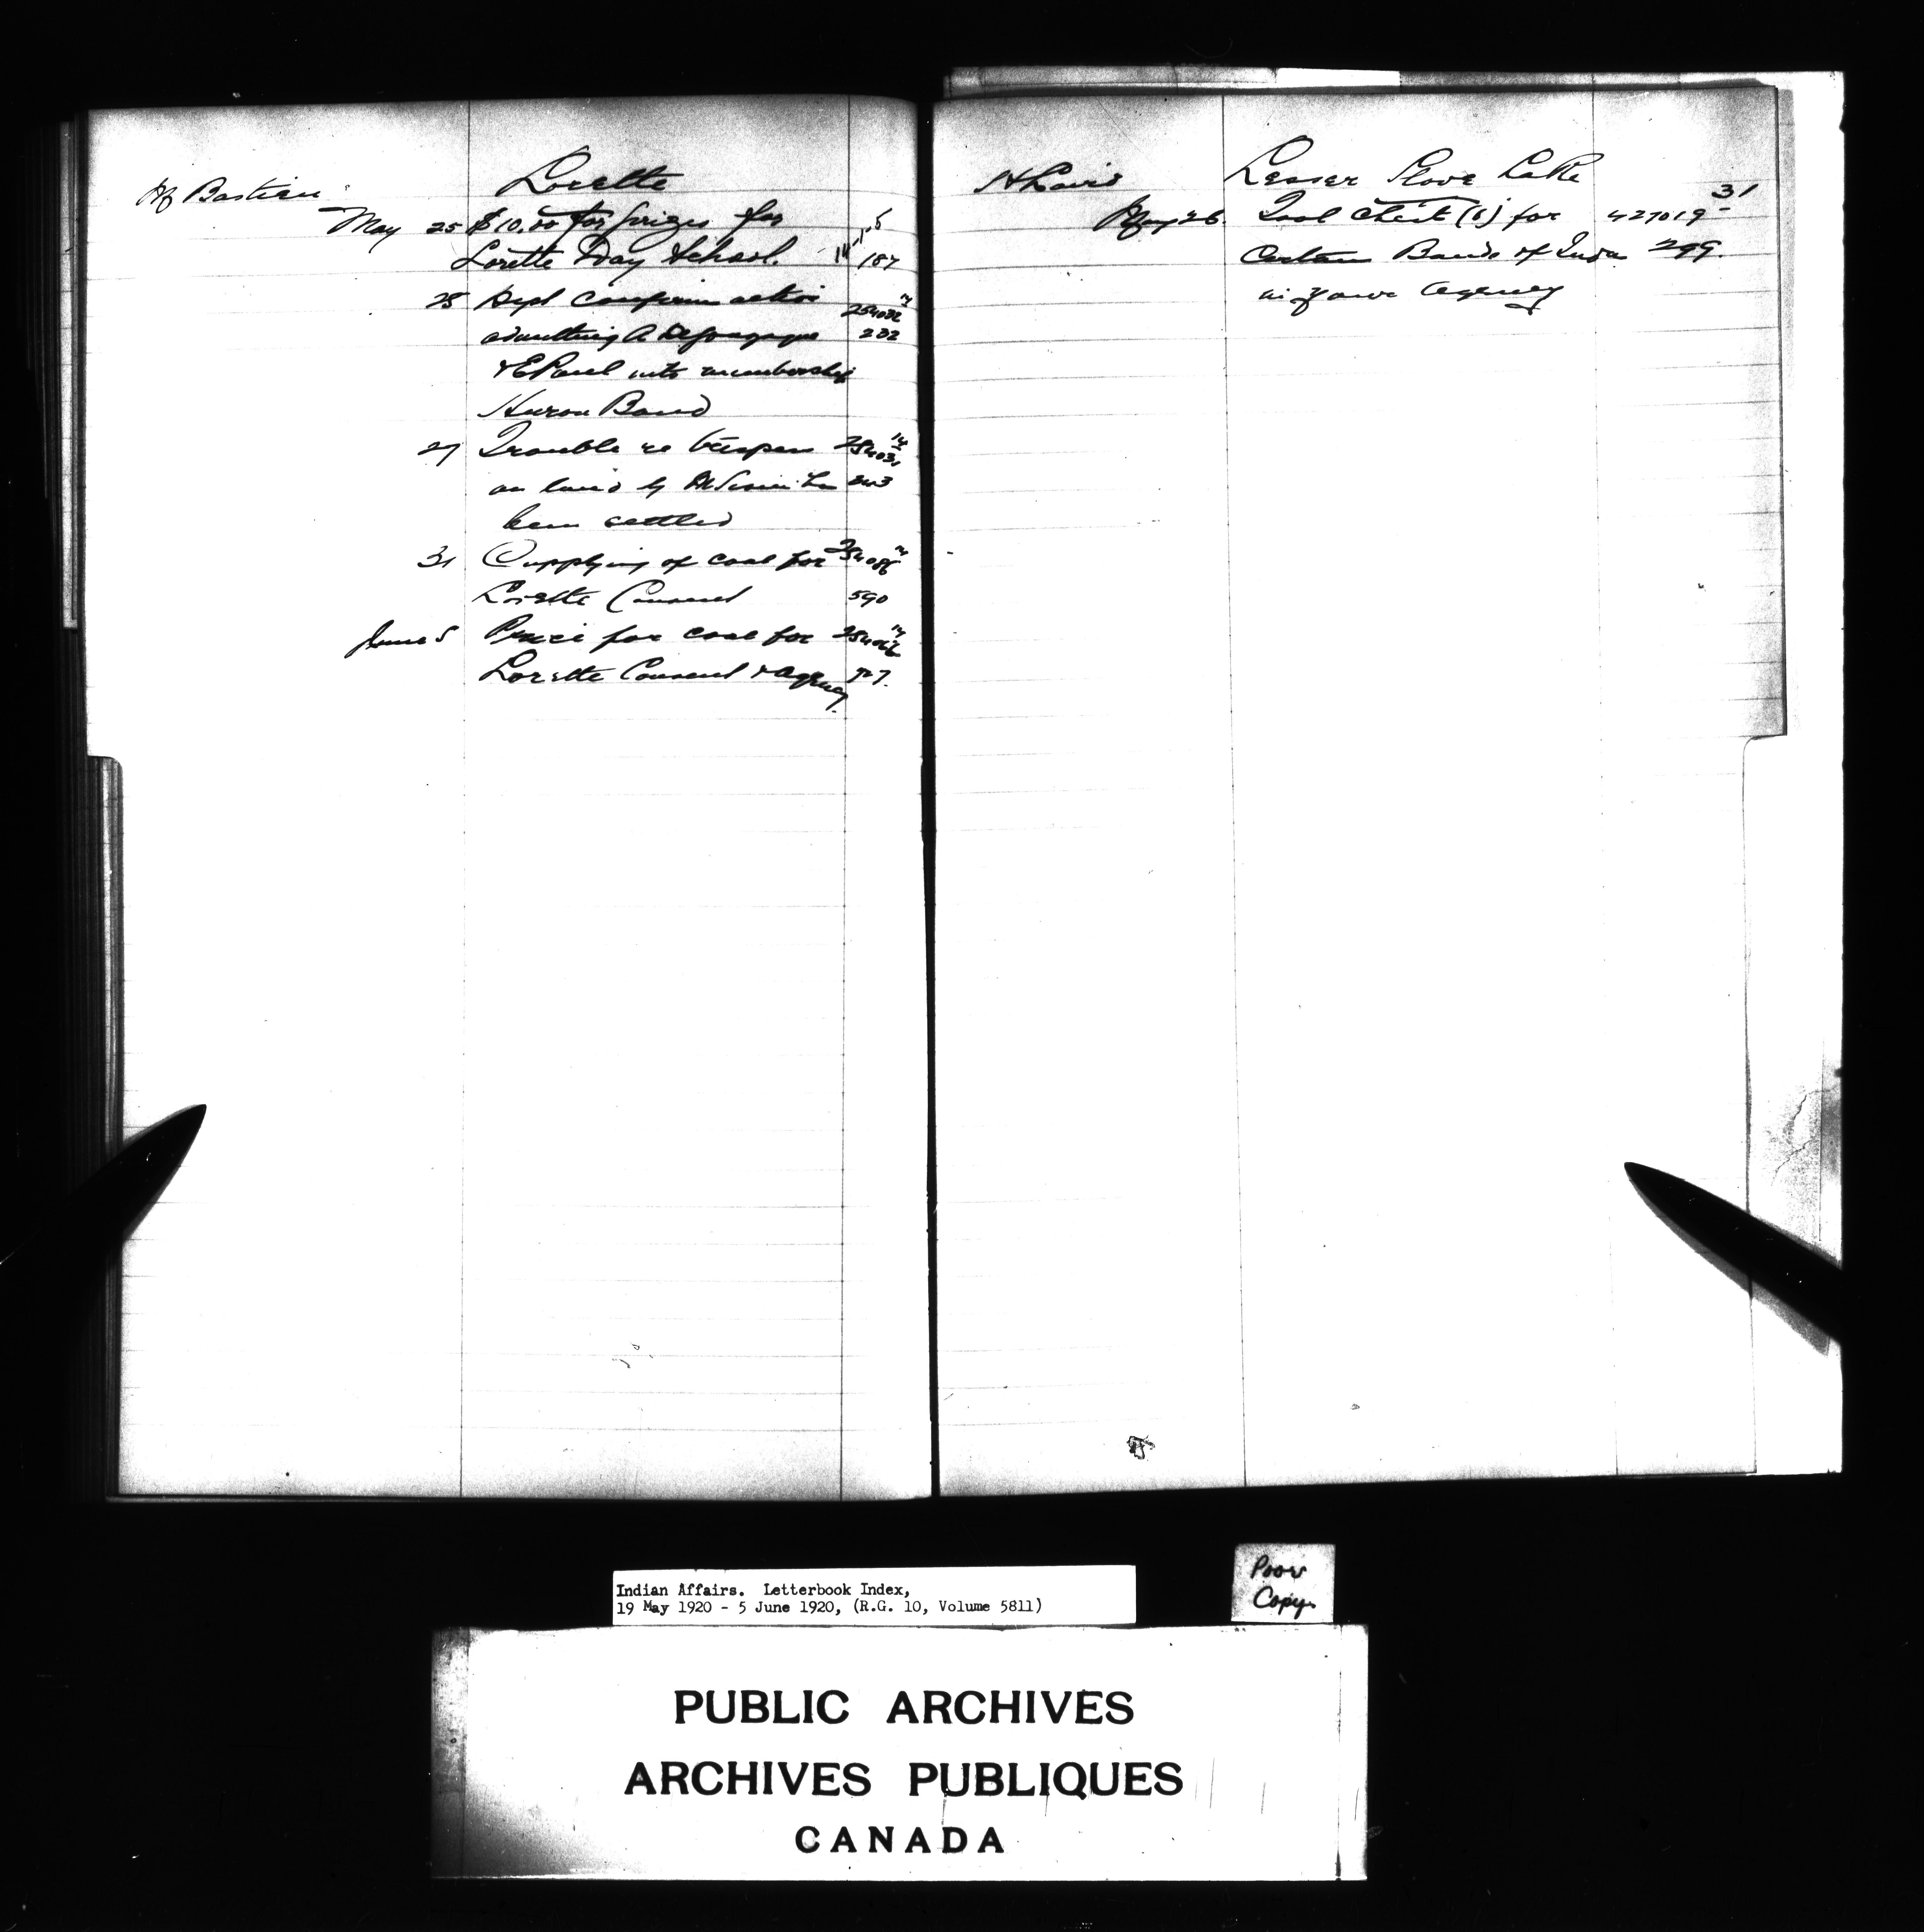 Lorette
Bastien
May 25 $10.00 for prizes for
Lorette Day School. 187
28 Dept confirms action 254032
admitting A 232
& E Paul into membership
Huron Band
27 Trouble re trespass
on land by has 343
been settled
31 Supplying of coal for
Lorette Council 590
June 5 Price for coal for
Lorette Council & Agency 727.
31
H Laird Lesser Slave Lake
May 26. Tool Chest (6) for 427019
Certain Bands of Inds 299.
in your Agency
Indian Affairs. Letterbook Index,
19 May 1920 - 5 June 1920, (R.G. 10, Volume 5811)
Poor
Copy.
PUBLIC ARCHIVES
ARCHIVES PUBLIQUES
CANADA